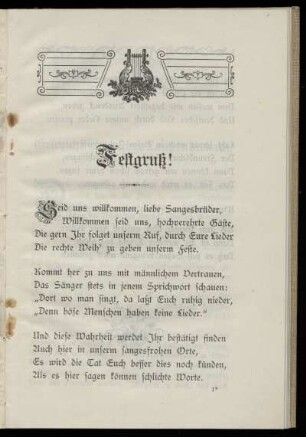 Festgruß!
Seid uns willkommen, liebe Sangesbrüder,
Willkommen seid uns, hochverehrte Gäste,
Die gern Ihr folget unserm Ruf, durch Eure Lieder
Die rechte Weih' zu geben unserm Feste.
Kommt her zu uns mit männlichem Vertrauen,
Das Sänger stets in jenem Sprichwort schauen:
„Dort wo man singt, da laßt Euch ruhig nieder,
„Denn böse Menschen haben keine Lieder.“
Und diese Wahrheit werdet Ihr bestätigt finden
Auch hier in unserm sangesfrohen Orte,
Es wird die Tat Euch besser dies noch künden,
Als es hier sagen können schlichte Worte.
1*